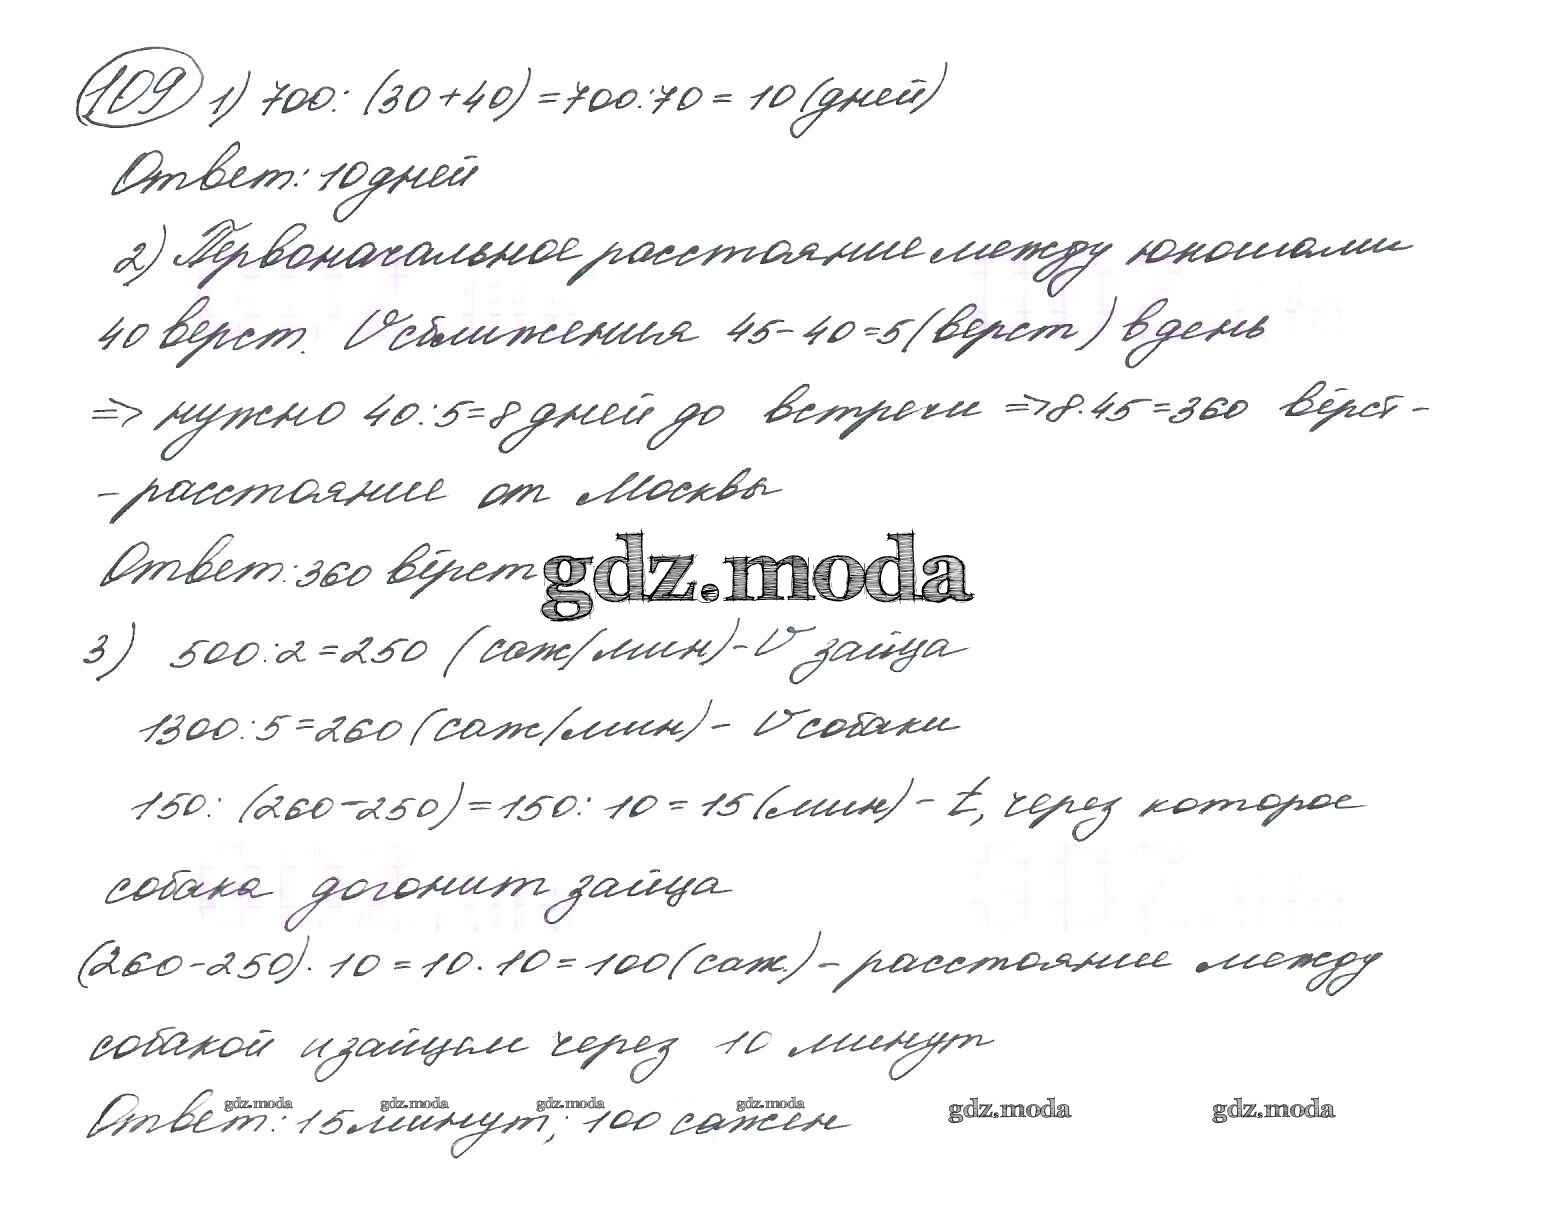 109 1) 700: (30+40) =700:70 = 10 (дней)
Ответ: 10 дней
2) Первоначальное расстояние между юношами
40 верст. V сближения 45-40=5 (верст) в день
=> нужно 40:5=8 дней до встречи => 8·45=360 вёрст-
- расстояние от Москвы
Ответ: 360 вёрст
gdz.moda
3) 500:2=250 (саж/мин) - V зайца
1300:5=260 (саж/мин) - V собаки
150: (260-250) = 150: 10 = 15 (мин) - t, через которое
собака догонит зайца
(260-250)· 10 = 10 · 10 = 100 (саж.) - расстояние между
собакой и зайцем через 10 минут
gdz.moda gdz.moda gdz.moda gdz.moda gdz.moda gdz.moda
Ответ: 15 минут; 100 сажен